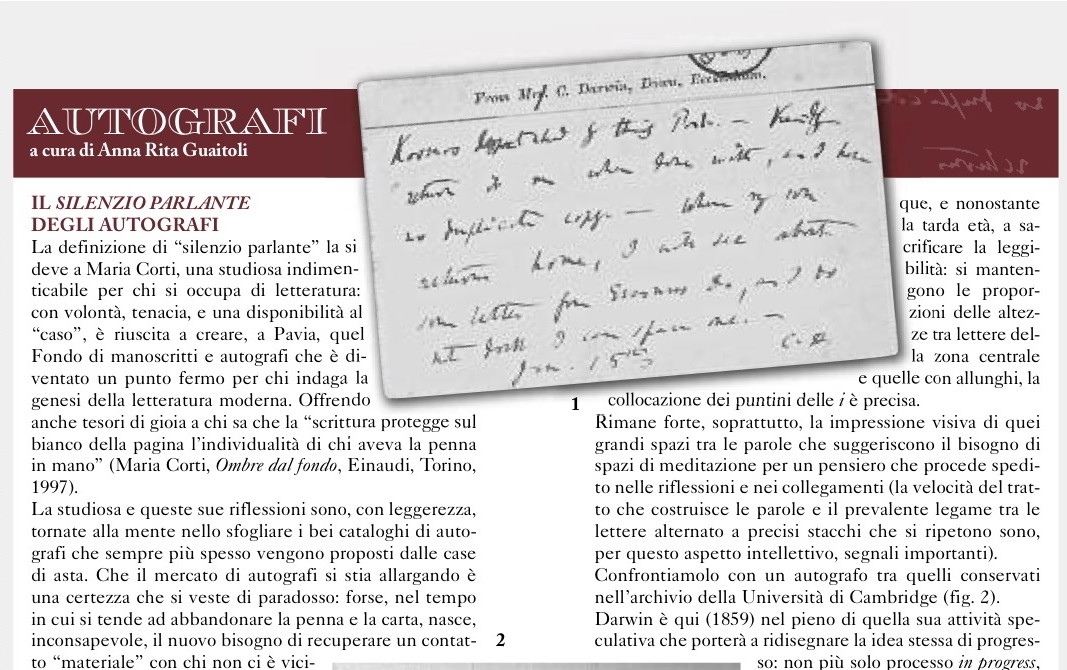 From Mr. C. Darwin, Down, Beckenham.
Kosmos this Post. — Kindly
return it to me when done with, as I have
no duplicate copy — When my son
returns home, I will see about
some letter from Erasmus D., and do
not doubt I can spare one. —
Jan. 15th C. D.
AUTOGRAFI
a cura di Anna Rita Guaitoli
IL SILENZIO PARLANTE
DEGLI AUTOGRAFI
La definizione di “silenzio parlante” la si
deve a Maria Corti, una studiosa indimen-
ticabile per chi si occupa di letteratura:
con volontà, tenacia, e una disponibilità al
“caso”, è riuscita a creare, a Pavia, quel
Fondo di manoscritti e autografi che è di-
ventato un punto fermo per chi indaga la
genesi della letteratura moderna. Offrendo
anche tesori di gioia a chi sa che la “scrittura protegge sul
bianco della pagina l’individualità di chi aveva la penna
in mano” (Maria Corti, Ombre dal fondo, Einaudi, Torino,
1997).
La studiosa e queste sue riflessioni sono, con leggerezza,
tornate alla mente nello sfogliare i bei cataloghi di auto-
grafi che sempre più spesso vengono proposti dalle case
di asta. Che il mercato di autografi si stia allargando è
una certezza che si veste di paradosso: forse, nel tempo
in cui si tende ad abbandonare la penna e la carta, nasce,
inconsapevole, il nuovo bisogno di recuperare un contat-
to “materiale” con chi non ci è vici-
1
2
que, e nonostante
la tarda età, a sa-
crificare la leggi-
bilità: si manten-
gono le propor-
zioni delle altez-
ze tra lettere del-
la zona centrale
e quelle con allunghi, la
collocazione dei puntini delle i è precisa.
Rimane forte, soprattutto, la impressione visiva di quei
grandi spazi tra le parole che suggeriscono il bisogno di
spazi di meditazione per un pensiero che procede spedi-
to nelle riflessioni e nei collegamenti (la velocità del trat-
to che costruisce le parole e il prevalente legame tra le
lettere alternato a precisi stacchi che si ripetono sono,
per questo aspetto intellettivo, segnali importanti).
Confrontiamolo con un autografo tra quelli conservati
nell’archivio della Università di Cambridge (fig. 2).
Darwin è qui (1859) nel pieno di quella sua attività spe-
culativa che porterà a ridisegnare la idea stessa di progres-
so: non più solo processo in progress,